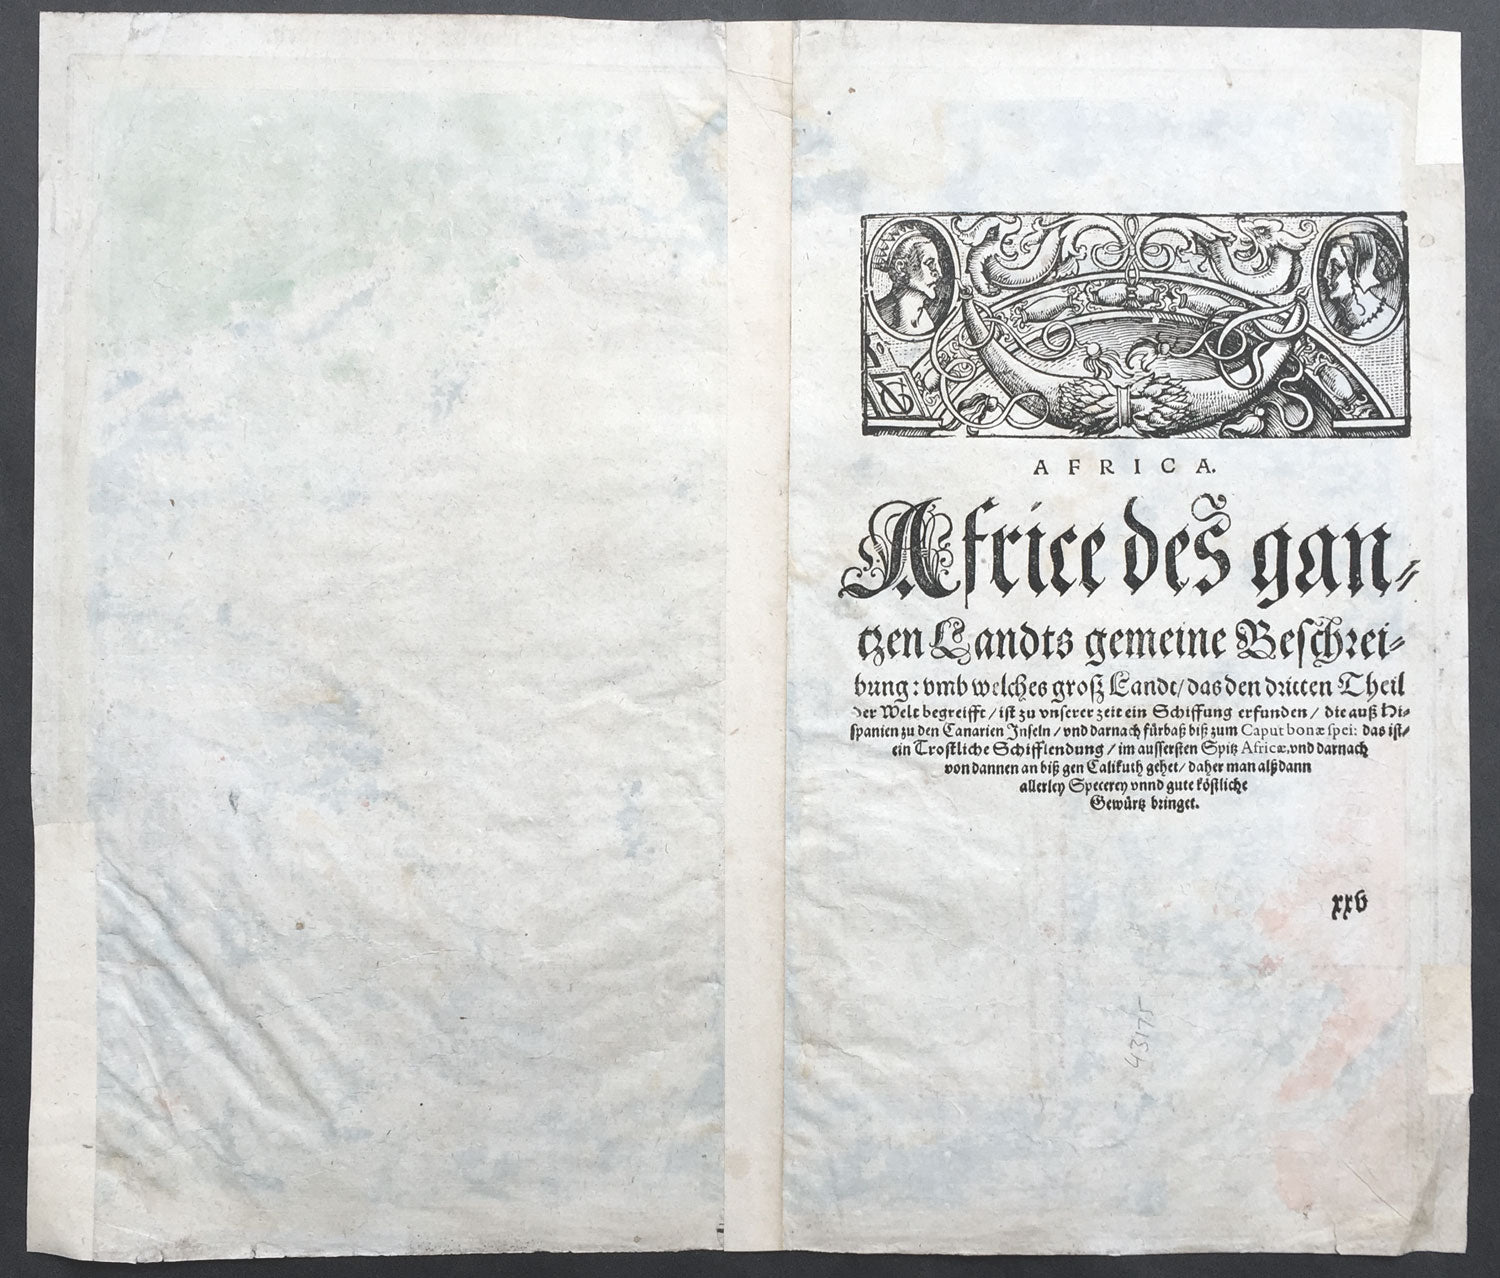 AFRICA.
Africe des̃ gan⸗
tzen Landts gemeine Beschrei⸗
bung: vmb welches groß Landt/ das den dritten Theil
der Welt begreifft/ ist zu vnserer zeit ein Schiffung erfunden/ die auß Hi⸗
spanien zu den Canarien Inseln/ vnd darnach fürbaß biß zum Caput bonæ spei: das ist/
ein Trostliche Schifflendung/ im aussersten Spitz Africæ, vnd darnach
von dannen an biß gen Calikuth gehet/ daher man alßdann
allerley Specerey vnnd gute köstliche
Gewürtz bringet.
xxv
43175